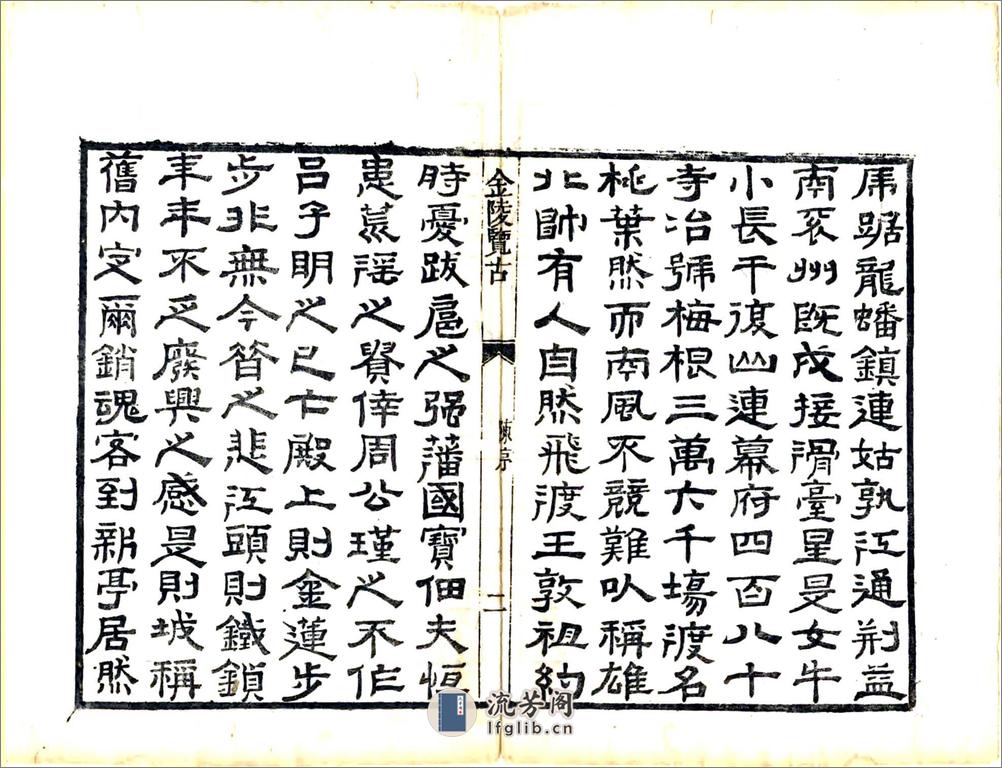 虎踞龍蟠鎮連姑孰江通荆益
南兖州既戍接滑臺星是女牛
小長干復山連幕府四百八十
寺冶號梅根三萬六千塲渡名
桃葉然而南風不競難以稱雄
北帥有人自然飛渡王敦祖約
金陵覽古 陳序 二
時憂跋扈之强藩國寶佃夫恒
患荒滛之嬖倖周公瑾之不作
吕子明之已亡殿上則金蓮步
步非無今昔之悲江頭則鐵鎖
年年不乏廢興之感是則城稱
舊内定爾銷魂客到新亭居然
流芳阁
lfglib.cn